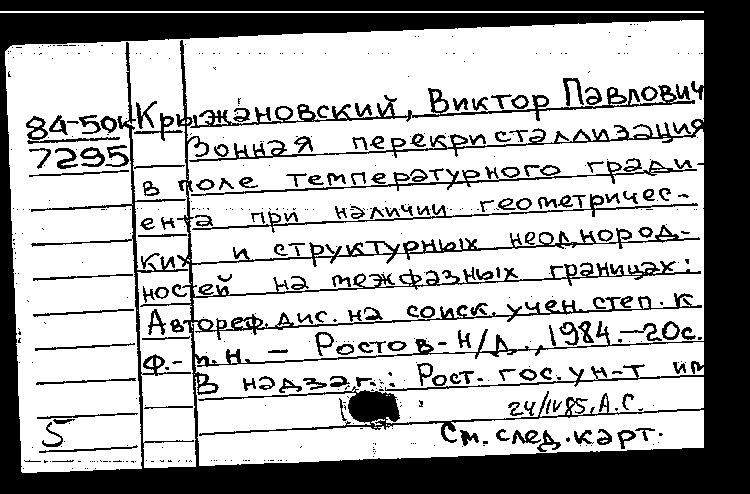 84-50к Крыжановский, Виктор Павлович
7295 Зонная перекристаллизация
в поле температурного гради-
ента при наличии геометричес-
ких и структурных неоднород-
ностей на межфазных границах:
Автореф. дис. на соиск. учен. степ. к.
ф.-м.н. — Ростов-н/Д., 1984. — 20с.
В надзаг.: Рост. гос. ун-т им
24/IV85, А.С.
5 См. след. карт.